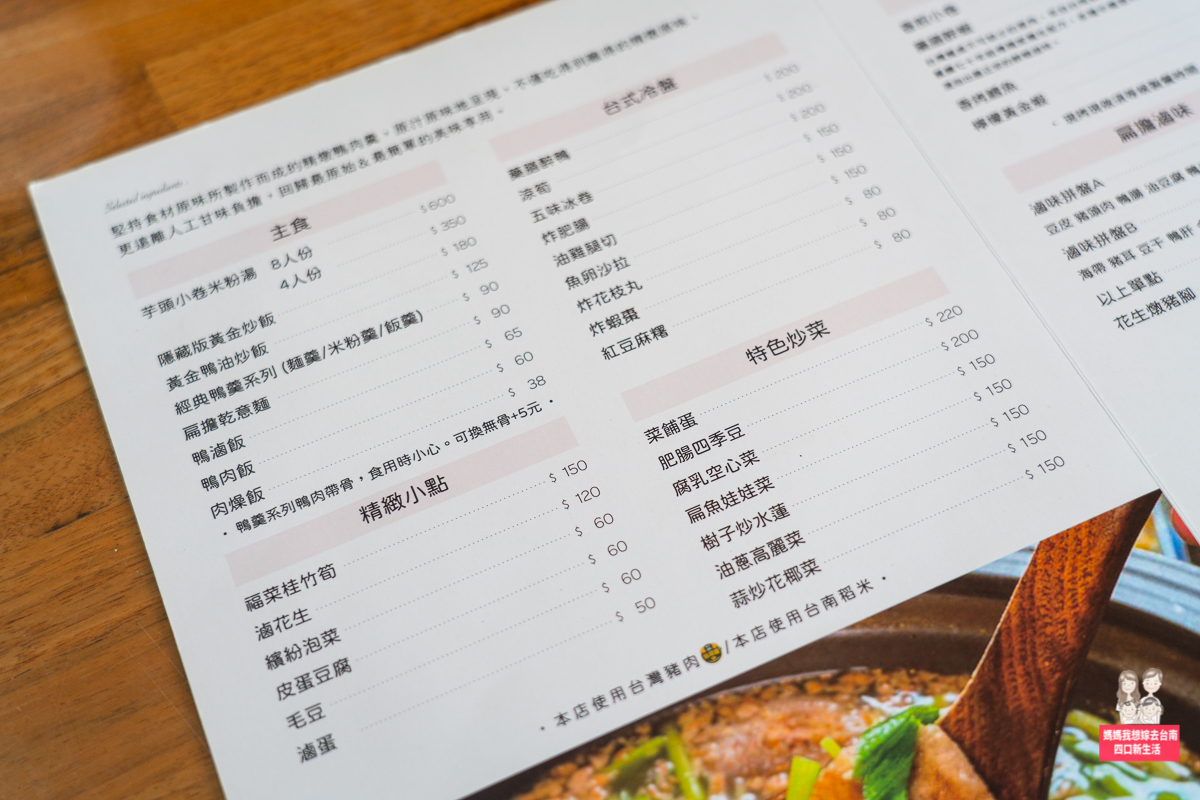 Selected ingredients
堅持食材原味所製作而成的精燉鴨肉羹。原汁原味地呈現。不僅吃得到簡樸的精緻風味。
更遠離人工甘味負擔。回歸最原始&最簡單的美味享受。
主食
芋頭小卷米粉湯 8人份 $600
4人份 $ 350
隱藏版黃金炒飯 $ 180
黃金鴨油炒飯 $ 125
經典鴨羹系列 (麵羹/米粉羹/飯羹) $ 90
扁擔乾意麵 $ 90
鴨滷飯 $ 65
鴨肉飯 $ 60
肉燥飯 $ 38
・鴨羹系列鴨肉帶骨,食用時小心。可換無骨+5元・
精緻小點
福菜桂竹筍 $ 150
滷花生 $ 120
繽紛泡菜 $ 60
皮蛋豆腐 $ 60
毛豆 $ 60
滷蛋 $ 50
台式冷盤
藥膳醉鴨 $ 200
涼筍 $ 200
五味冰卷 $ 200
炸肥腸 $ 150
油雞腿切 $ 150
魚卵沙拉 $ 150
炸花枝丸 $ 80
炸蝦棗 $ 80
紅豆麻糬 $ 80
特色炒菜
菜餔蛋 $ 220
肥腸四季豆 $ 200
腐乳空心菜 $ 150
扁魚娃娃菜 $ 150
樹子炒水蓮 $ 150
油蔥高麗菜 $ 150
蒜炒花椰菜 $ 150
・本店使用台灣豬肉/本店使用台南稻米・
香烤鯖魚
檸檬黃金蝦
扁擔滷味
滷味拼盤A
豆皮 豬頭肉 鴨腸 油豆腐 鴨
滷味拼盤B
海帶 豬耳 豆干 鴨肝
以上單點
花生燉豬腳
媽媽我想嫁去台南
四口新生活